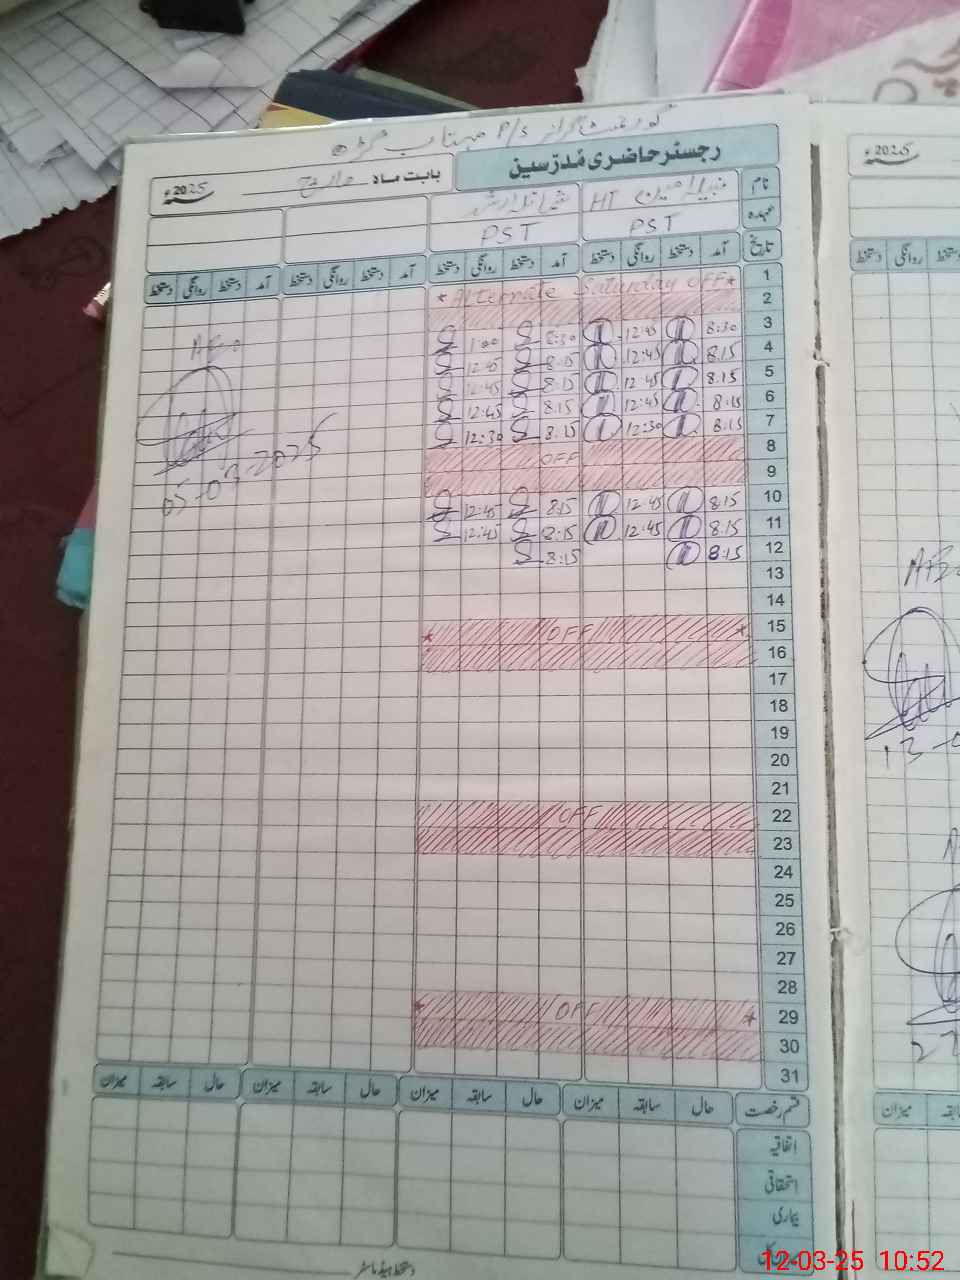 گورنمنٹ گرلز P/S مہتاب گڑھ
رجسٹر حاضری مُدرّسین
بابت ماہ مارچ 2025ء
نام HT
عہدہ PST PST
تاریخ آمد دستخط روانگی دستخط آمد دستخط روانگی دستخط آمد دستخط روانگی دستخط آمد دستخط روانگی دستخط
1 *Alternate Saturday off*
2
3 8:30 12:45 8:30 1:00
4 8.15 12:45 8.15 12:45
5 8.15 12:45 8:15 12:45
6 8:15 12:45 8.15 12:45
7 8:15 12:30 8.15 12:30
8 OFF
9
10 8.15 12:45 8.15 12:45
11 8.15 12:45 8:15 12:45
12 8:15 8:15
13
14
15 * OFF *
16
17
18
19
20
21
22 OFF
23
24
25
26
27
28
29 * OFF *
30
31
05-03-2025
قسم رخصت حال سابقہ میزان حال سابقہ میزان حال سابقہ میزان حال سابقہ میزان
اتفاقیہ
استحقاقی
بیماری
دستخط ہیڈ ماسٹر
2025ء
دستخط روانگی
13-0
22
میزان
12-03-25 10:52